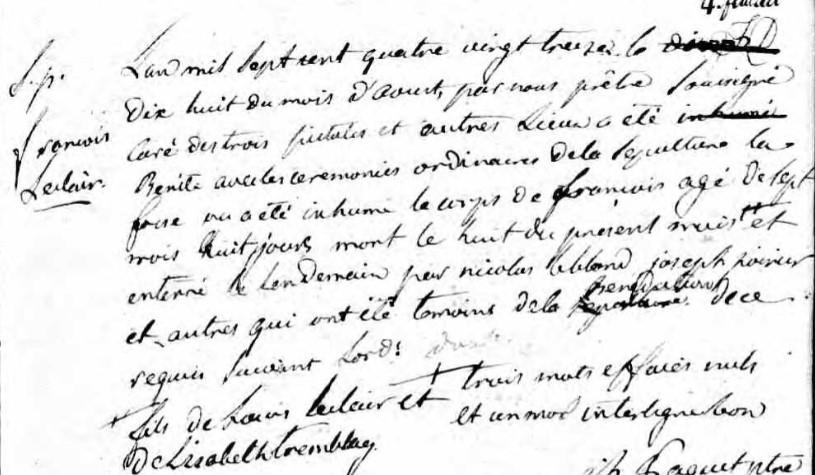 S. p.
François
Leclair
L'an mil sept cent quatre vingt treize le
dix huit du mois d'aoust, par nous prêtre soussigné
curé des trois pistoles et autres Lieux a été inhumé
Benite avec les ceremonies ordinaires de la sepulture la
fosse ou a été inhumé le corps de françois agé de sept
mois huit jours mort le huit du présent mois + et
enterré le lendemain par nicolas leblond joseph
et autres qui ont été temoins de la Benediction sepulture de ce
requis suivant l'ord:
+ fils de Louis leclair et
de Elisabeth tremblay
+ trois mots effacés nuls
et un mot interligne bon
Paquet ptre